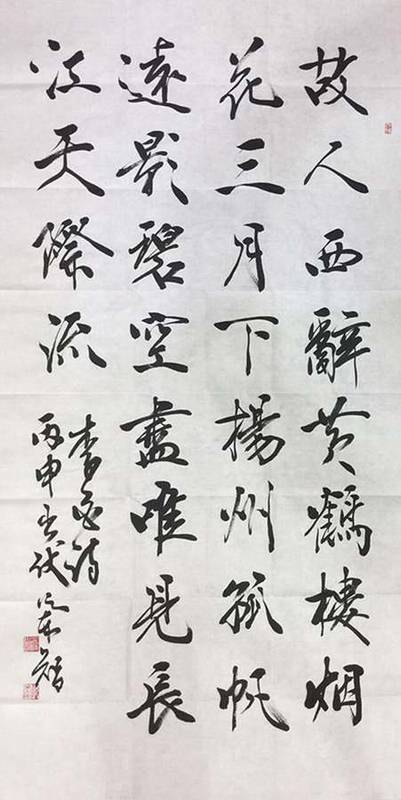 故人西辭黄鶴樓烟
花三月下楊州孤帆
遠影碧空盡唯見長
江天際流
李白詩
丙申